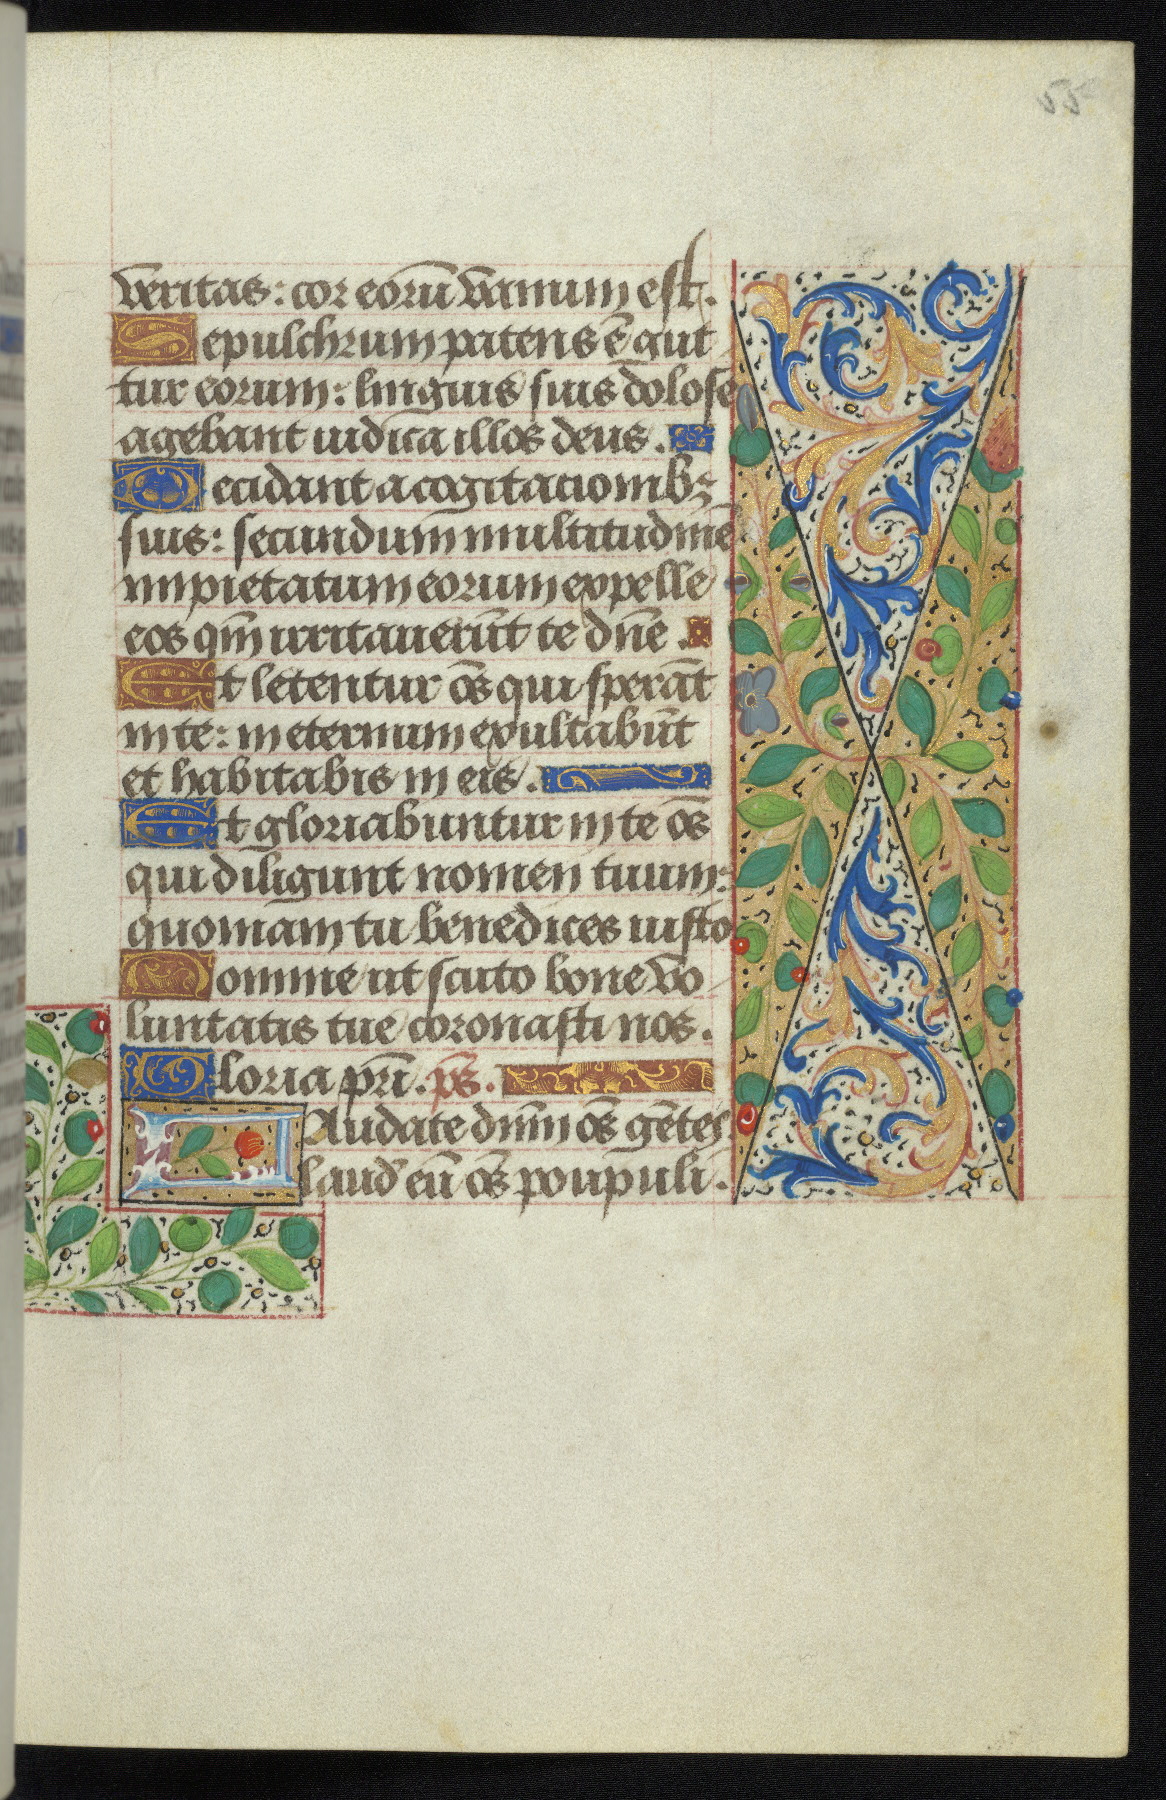 55
veritas: cor eorū vanum est.
Sepulchrum patens ē gut
tur eorum: linguis suis dolose
agebant iudica illos deus.
Decidant a cogitacionibꝫ
suis: secundum multitudinē
impietatum eorum expelle
eos qm̄ irritauerūt te dn̄e.
Et letentur ōs qui sperāt
in te: in eternum exultabūt
et habitabis in eis.
Et gloriabuntur in te ōs
qui diligunt nomen tuum:
quoniam tu benedices iusto
Domine ut scuto bone vo
luntatis tue coronasti nos.
Gloria pr̄i. ps̄.
Laudate dnm̄ ōs gētes:
laud̄ eū ōs poupuli.